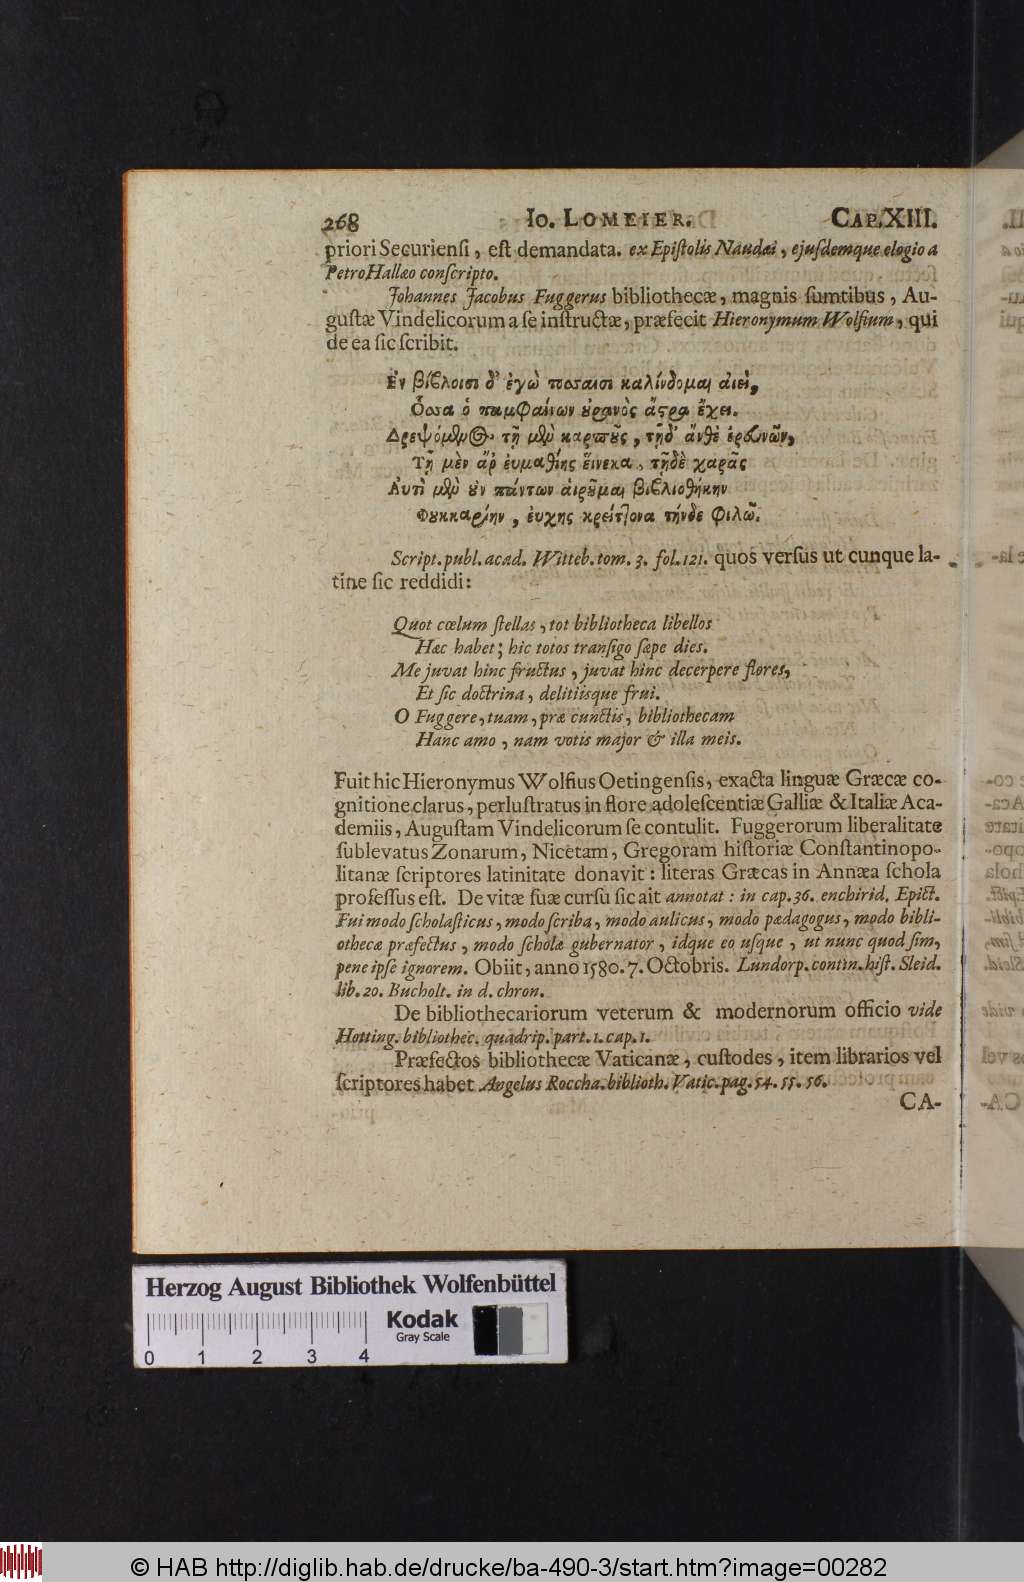 268 Io. LOMEIER. CAP. XIII.
priori Securiensi, est demandata. ex Epistolis Naudæi, ejusdemque elogio a
Petro Hallæo conscripto.
Johannes Jacobus Fuggerus bibliothecæ, magnis sumtibus, Au-
gustæ Vindelicorum a se instructæ, præfecit Hieronymum Wolfium, qui
de ea sic scribit.
Ἐν βίβλοισι δ' ἐγὼ ποσαισι καλίνδομαι ἀιεὶ,
Ὅσσα ὁ παμφαίνων οὐρανὸς ἄστρα ἔχει.
Δρεψόμενος τῇ μὲν καρποὺς, τῇδ' ἄνθε'
Τῇ μὲν ἄρ' ἐυμαθίης εἵνεκα, τῇδὲ χαρᾶς
Ἀυτὶ μὲν οὖν πάντων αἱροῦμαι βιβλιοθήκην
Φουκκαρίην, ἐυχῆς κρείττονα τήνδε φιλῶ.
Script. publ. acad. Witteb. tom. 3. fol. 121. quos versus ut cunque la-
tine sic reddidi:
Quot cœlum stellas, tot bibliotheca libellos
Hæc habet; hic totos transigo sæpe dies.
Me juvat hinc fructus, juvat hinc decerpere flores,
Et sic doctrina, delitiisque frui.
O Fuggere, tuam, præ cunctis, bibliothecam
Hanc amo, nam votis major & illa meis.
Fuit hic Hieronymus Wolfius Oetingensis, exacta linguæ Græcæ co-
gnitione clarus, perlustratus in flore adolescentiæ Galliæ & Italiæ Aca-
demiis, Augustam Vindelicorum se contulit. Fuggerorum liberalitate
sublevatus Zonarum, Nicetam, Gregoram historiæ Constantinopo-
litanæ scriptores latinitate donavit: literas Græcas in Annæa schola
professus est. De vitæ suæ cursu sic ait annotat: in cap. 36. enchirid. Epict.
Fui modo scholasticus, modo scriba, modo aulicus, modo pædagogus, modo bibli-
othecæ præfectus, modo scholæ gubernator, idque eo usque, ut nunc quod sim,
pene ipse ignorem. Obiit, anno 1580. 7. Octobris. Lundorp. contin. hist. Sleid.
lib. 20. Bucholt. in d. chron.
De bibliothecariorum veterum & modernorum officio vide
Hotting. bibliothec. quadrip. part. 1. cap. 1.
Præfectos bibliothecæ Vaticanæ, custodes, item librarios vel
scriptores habet Angelus Roccha. biblioth. Vatic. pag. 54. 55. 56.
CA-
Herzog August Bibliothek Wolfenbüttel
Kodak
Gray Scale
0 1 2 3 4
© HAB http://diglib.hab.de/drucke/ba-490-3/start.htm?image=00282